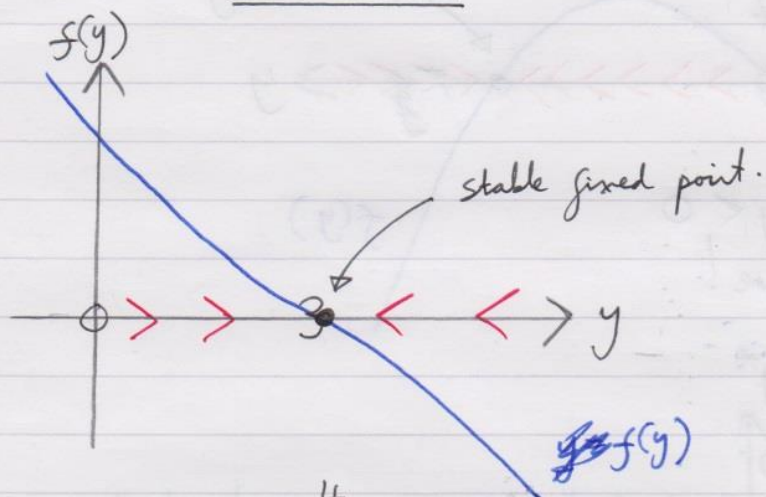 f(y)
stable fixed point.
0
3
y
f(y)